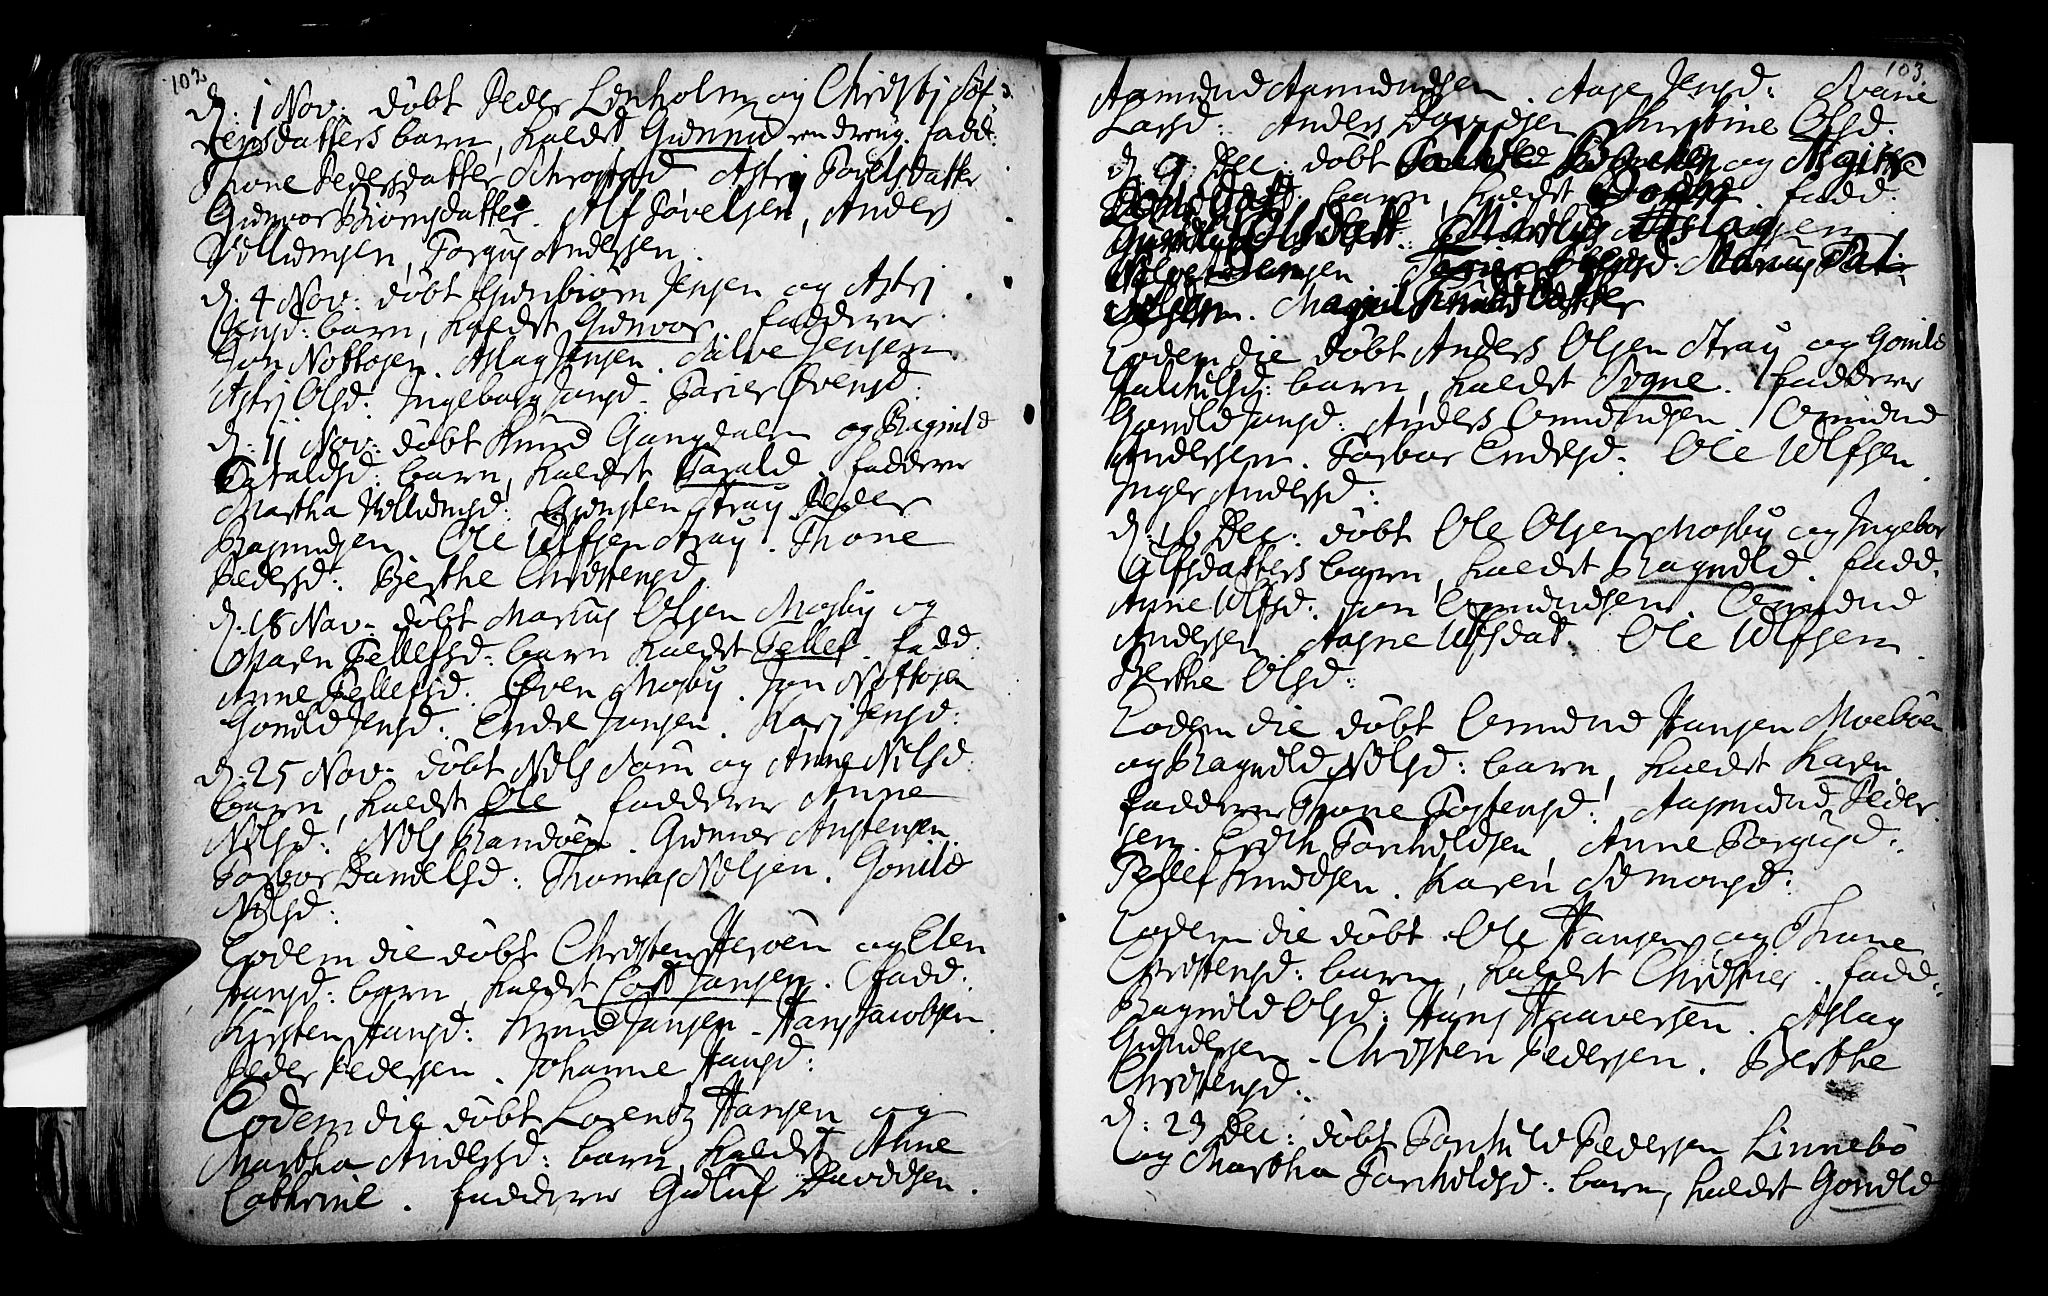 102
d: 1 Nov: döbt Peder Lenholm og Christj Söf-
rensdatters barn, kaldet Gunnu en dreng. fadd:
Thone Pedersdatter Schrostad Astrj Povelsdatter
Gunvor Biörnsdatter. Alf Povelsen, Anders
Villumsen, Torgus Andersen.
d: 4 Nov: döbt Gunbiörn Jensen og Astrj
Jensd: barn, kaldet Gunvor. faddere
Jon Nottosen. Aslag Jensen. Salve Jensen
Astrj Olsd. Ingeborg Jansd. Torier Övensd:
d: 11 Nov: döbt Knud Gangdalen og Ragnild
Taraldsd: barn, kaldet Tarald. faddere
Martha Villumsd: Gunsten Stray Peder
Rasmusen. Ole Ulfsen Stray. Thone
Pedersd: Berthe Christensd.
d: 18 Nov. döbt Marcus Olsen Mosby og
Maren Tellefsd: barn kaldet Tellef. fadd:
Anne Tellefsd. Even Mosby. Jon Nottosen
Gonild Jensd: Endre Jansen. Karj Jensd:
d: 25 Nov. döbt Niels Sam og Anne Nilsd:
barn, kaldet Ole. faddere Anne
Nilsd: Nils Randöen. Gunner Anstensen.
Torbor Danielsd: Thomas Nilsen. Gonild
Nilsd:
Eodem die döbt Christen Heröen og Elen
Hansd: barn, kaldet Cort Jansen. fadd.
Kirsten Hansd: Knud Jansen. Hans Jacobsen.
Peder Pedersen. Johanne Hansd:
Eodem die döbt Lorentz Hansen og
Martha Andersd: barn, kaldet Anne
Cathrine. faddere Gudluf Davidsen.
103.
Aamund Aamundsen. Aase Jensd: Marie
Larsd: Anders Davidsen Christine Olsd:
d. 9 Dec: döbt og Asgitte
barn, kaldet fadd:
Olsdatt: Aslagsen

Magnil Knudsdatter
Eodem die döbt Anders Olsen Stray og Gonild
barn, kaldet Sogne. faddere
Gonild Jansd: Anders Omundsen. Omund
Andersen. Torbor Endresd: Ole Ulfsen.
Inger Andersd:
d: 16 Dec: döbt Ole Olsen Mosby og Ingebor
Ulfsdatters barn, kaldet Ragnild. fadd.
Anne Ulfsd: Jon Omundsen. Omund
Andersen. Aasne Ulfsdat. Ole Ulfsen.
Berthe Olsd:
Eodem die döbt Omund Hansen Moeböen
og Ragnild Nilsd: barn, kaldet Karen
faddere Thone Tostensd: Aasmund Peder-
sen. Erich Torkildsen, Anne Torgusd:
Tellef Knudsen. Karen Simonsd:
Eodem die döbt Ole Hansen og Thone
Christensd: barn, kaldet Christier. fadd:
Ragnild Olsd: Hans Haaversen. Aslag
Gundersen. Christen Pedersen. Berthe
Christensd:
d: 23 Dec: döbt Torkild Pedersen Linnebö
og Martha Torkildsd: barn, kaldet Gonild